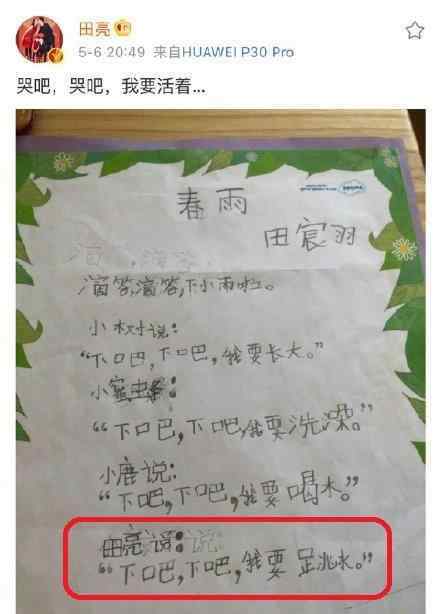 田亮
5-6 20:49 来自HUAWEI P30 Pro
哭吧，哭吧，我要活着...
春雨
田宸羽
滴答,滴答,下小雨啦。
小树说：
“下吧,下吧,我要长大。”
“下吧,下吧,我要洗澡。”
小唐说：
“下吧,下吧,我要喝水。”
田亮说：说
“下吧,下吧,我要跳水。”